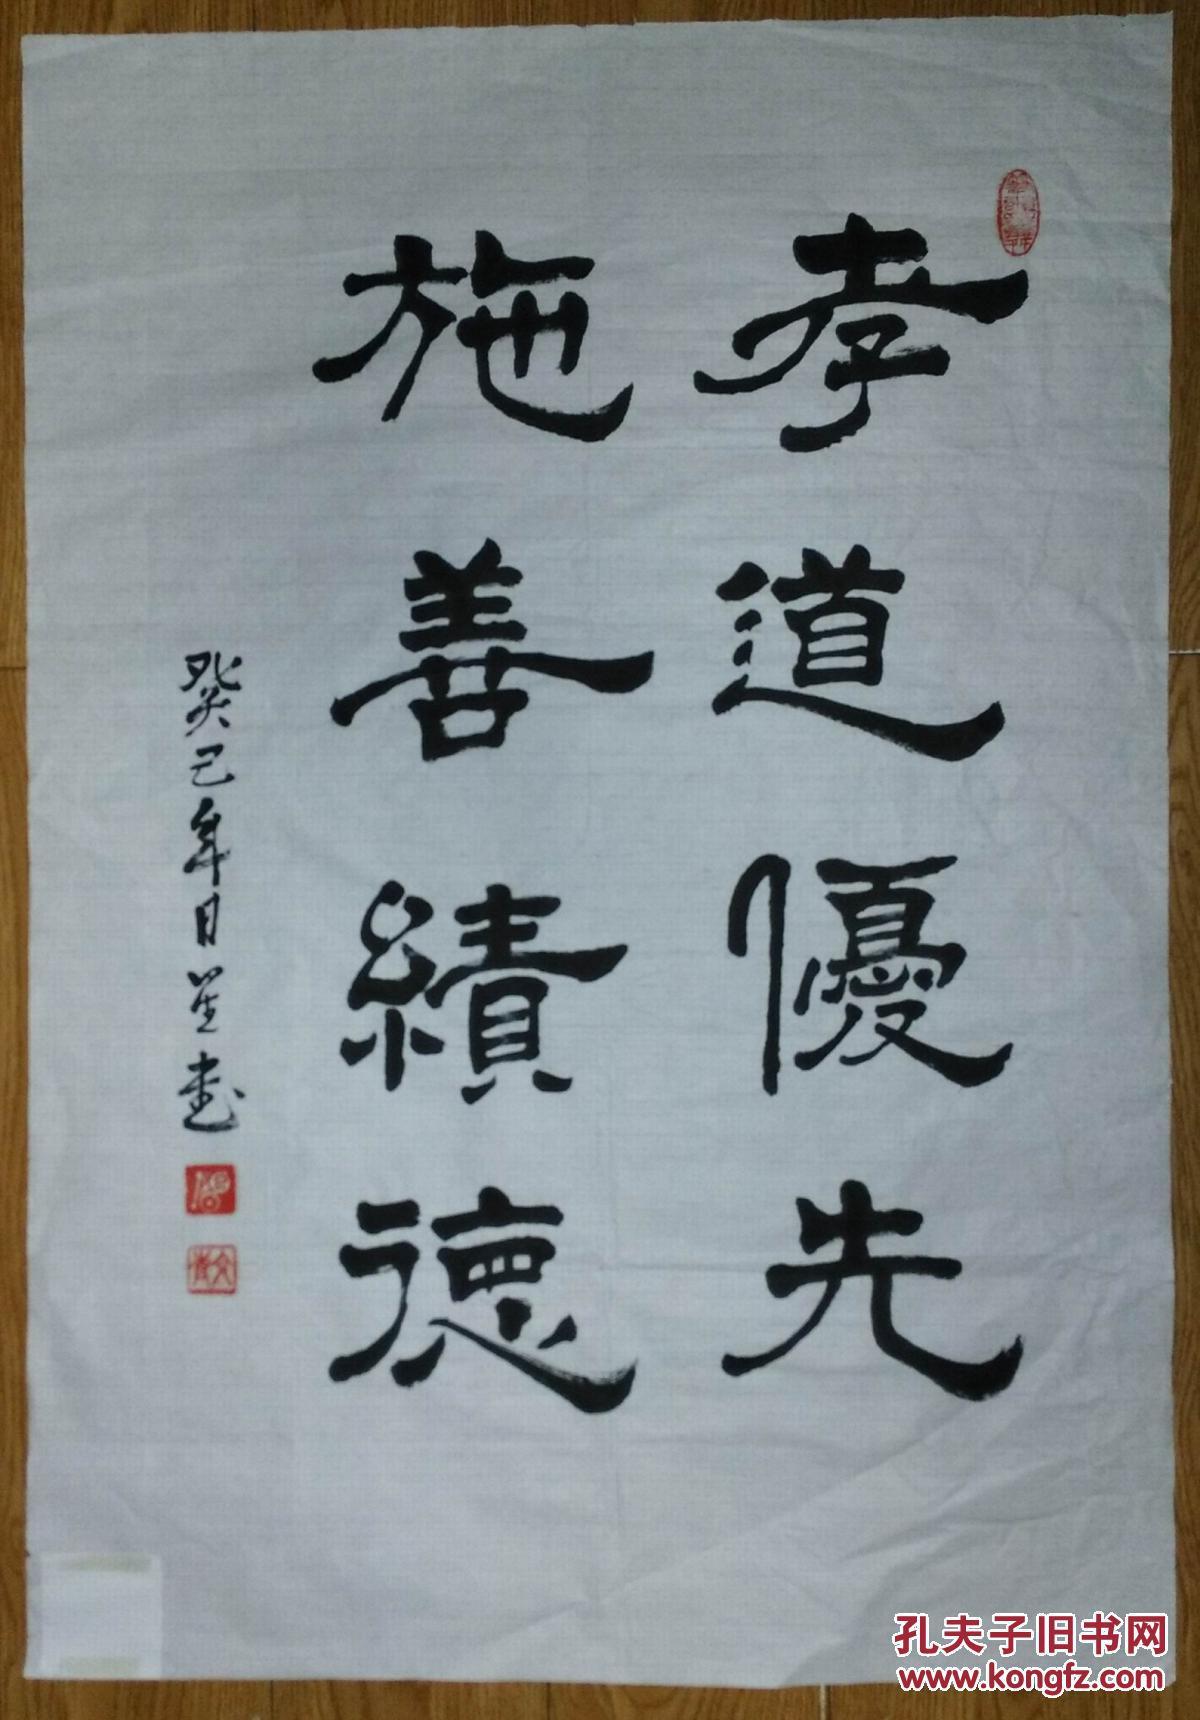 孝道優先
施善績德
癸巳年日笙書
孔夫子旧书网
www.kongfz.com